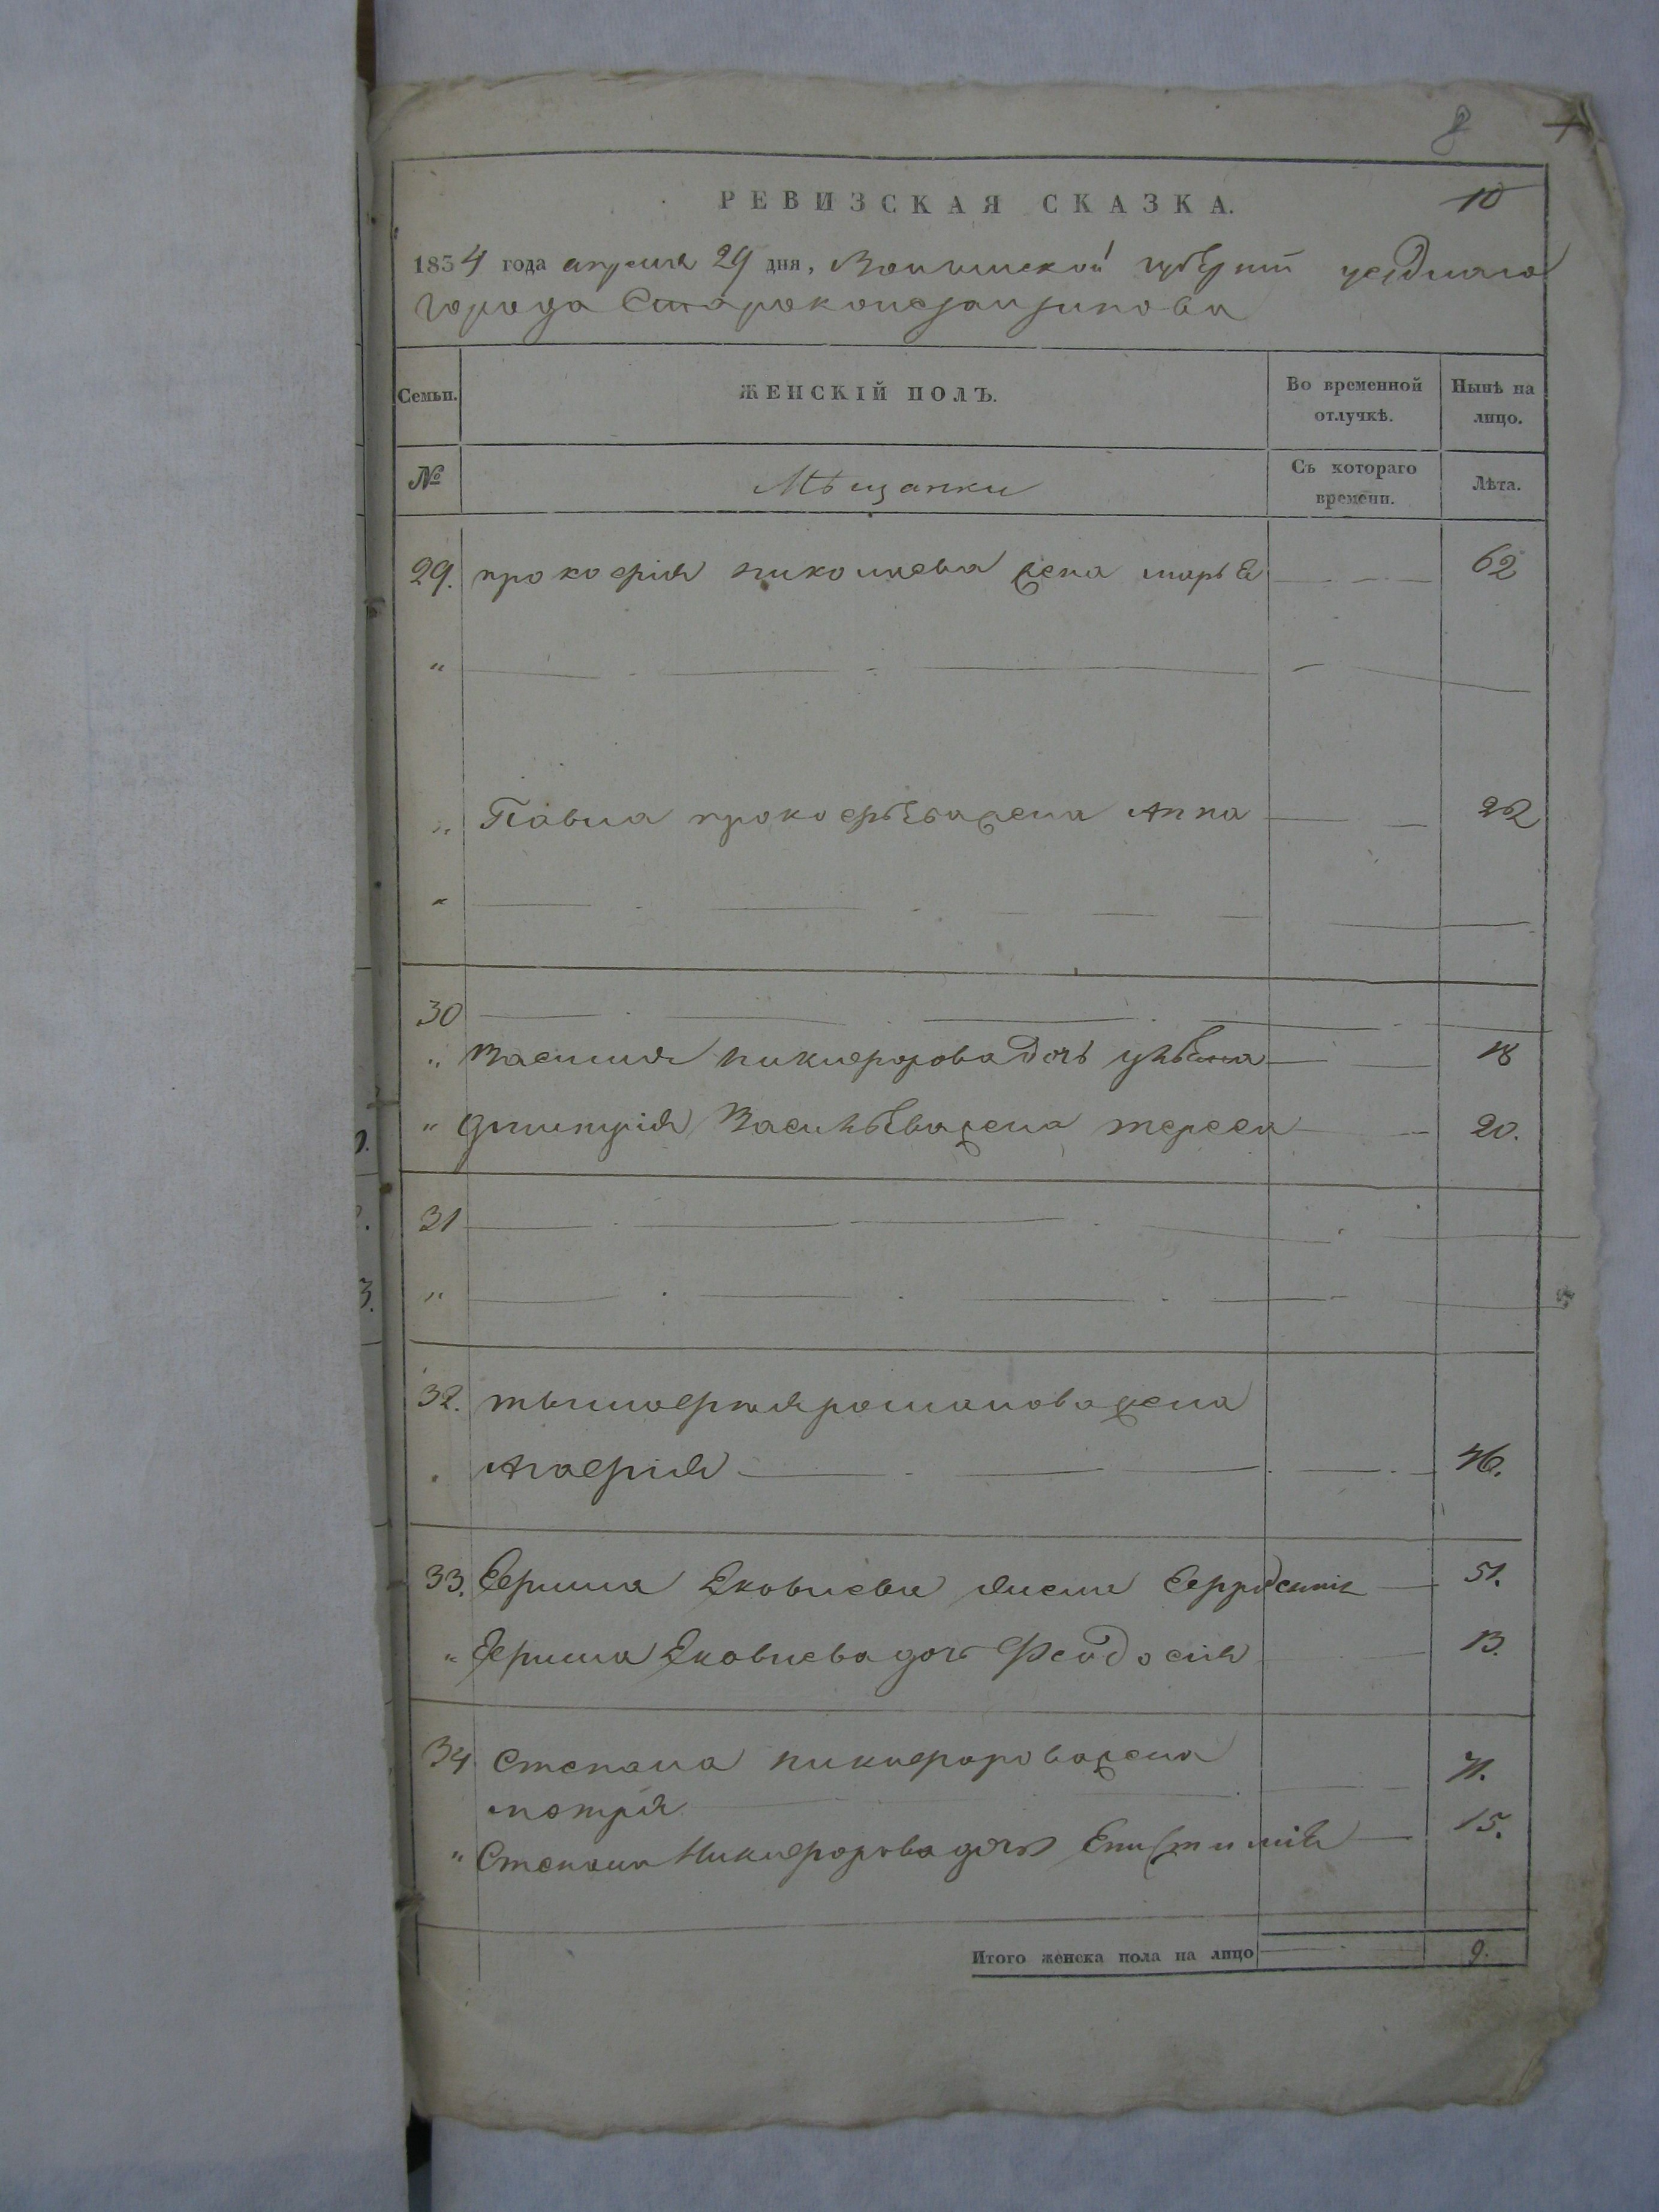 8
РЕВИЗСКАЯ СКАЗКА.
10
1854 года апреля 29 дня, Волынской губернїи уезднаго
города Староконстантинова
Семьи. ЖЕНСКІЙ ПОЛЪ. Во временной отлучкѣ. Нынѣ на лицо.
№ Мѣщанки Съ котораго времени. Лѣта.
29. прокофія николаева жена марья 62
"
" Павла прокофьева жена Анна 22
"
30
" Василия никифорова дочь 18
" Дмитрія Васильева жена тереса 20.
31
"
32. романова жена
Агафія 46.
33. Яковлева жена 51.
" Яковлева дочь Феодосія 13.
34. Степана никифорова жена
мотря 71.
" Степана Никифорова дочь Епистимія 15.
Итого женска пола на лицо 9.